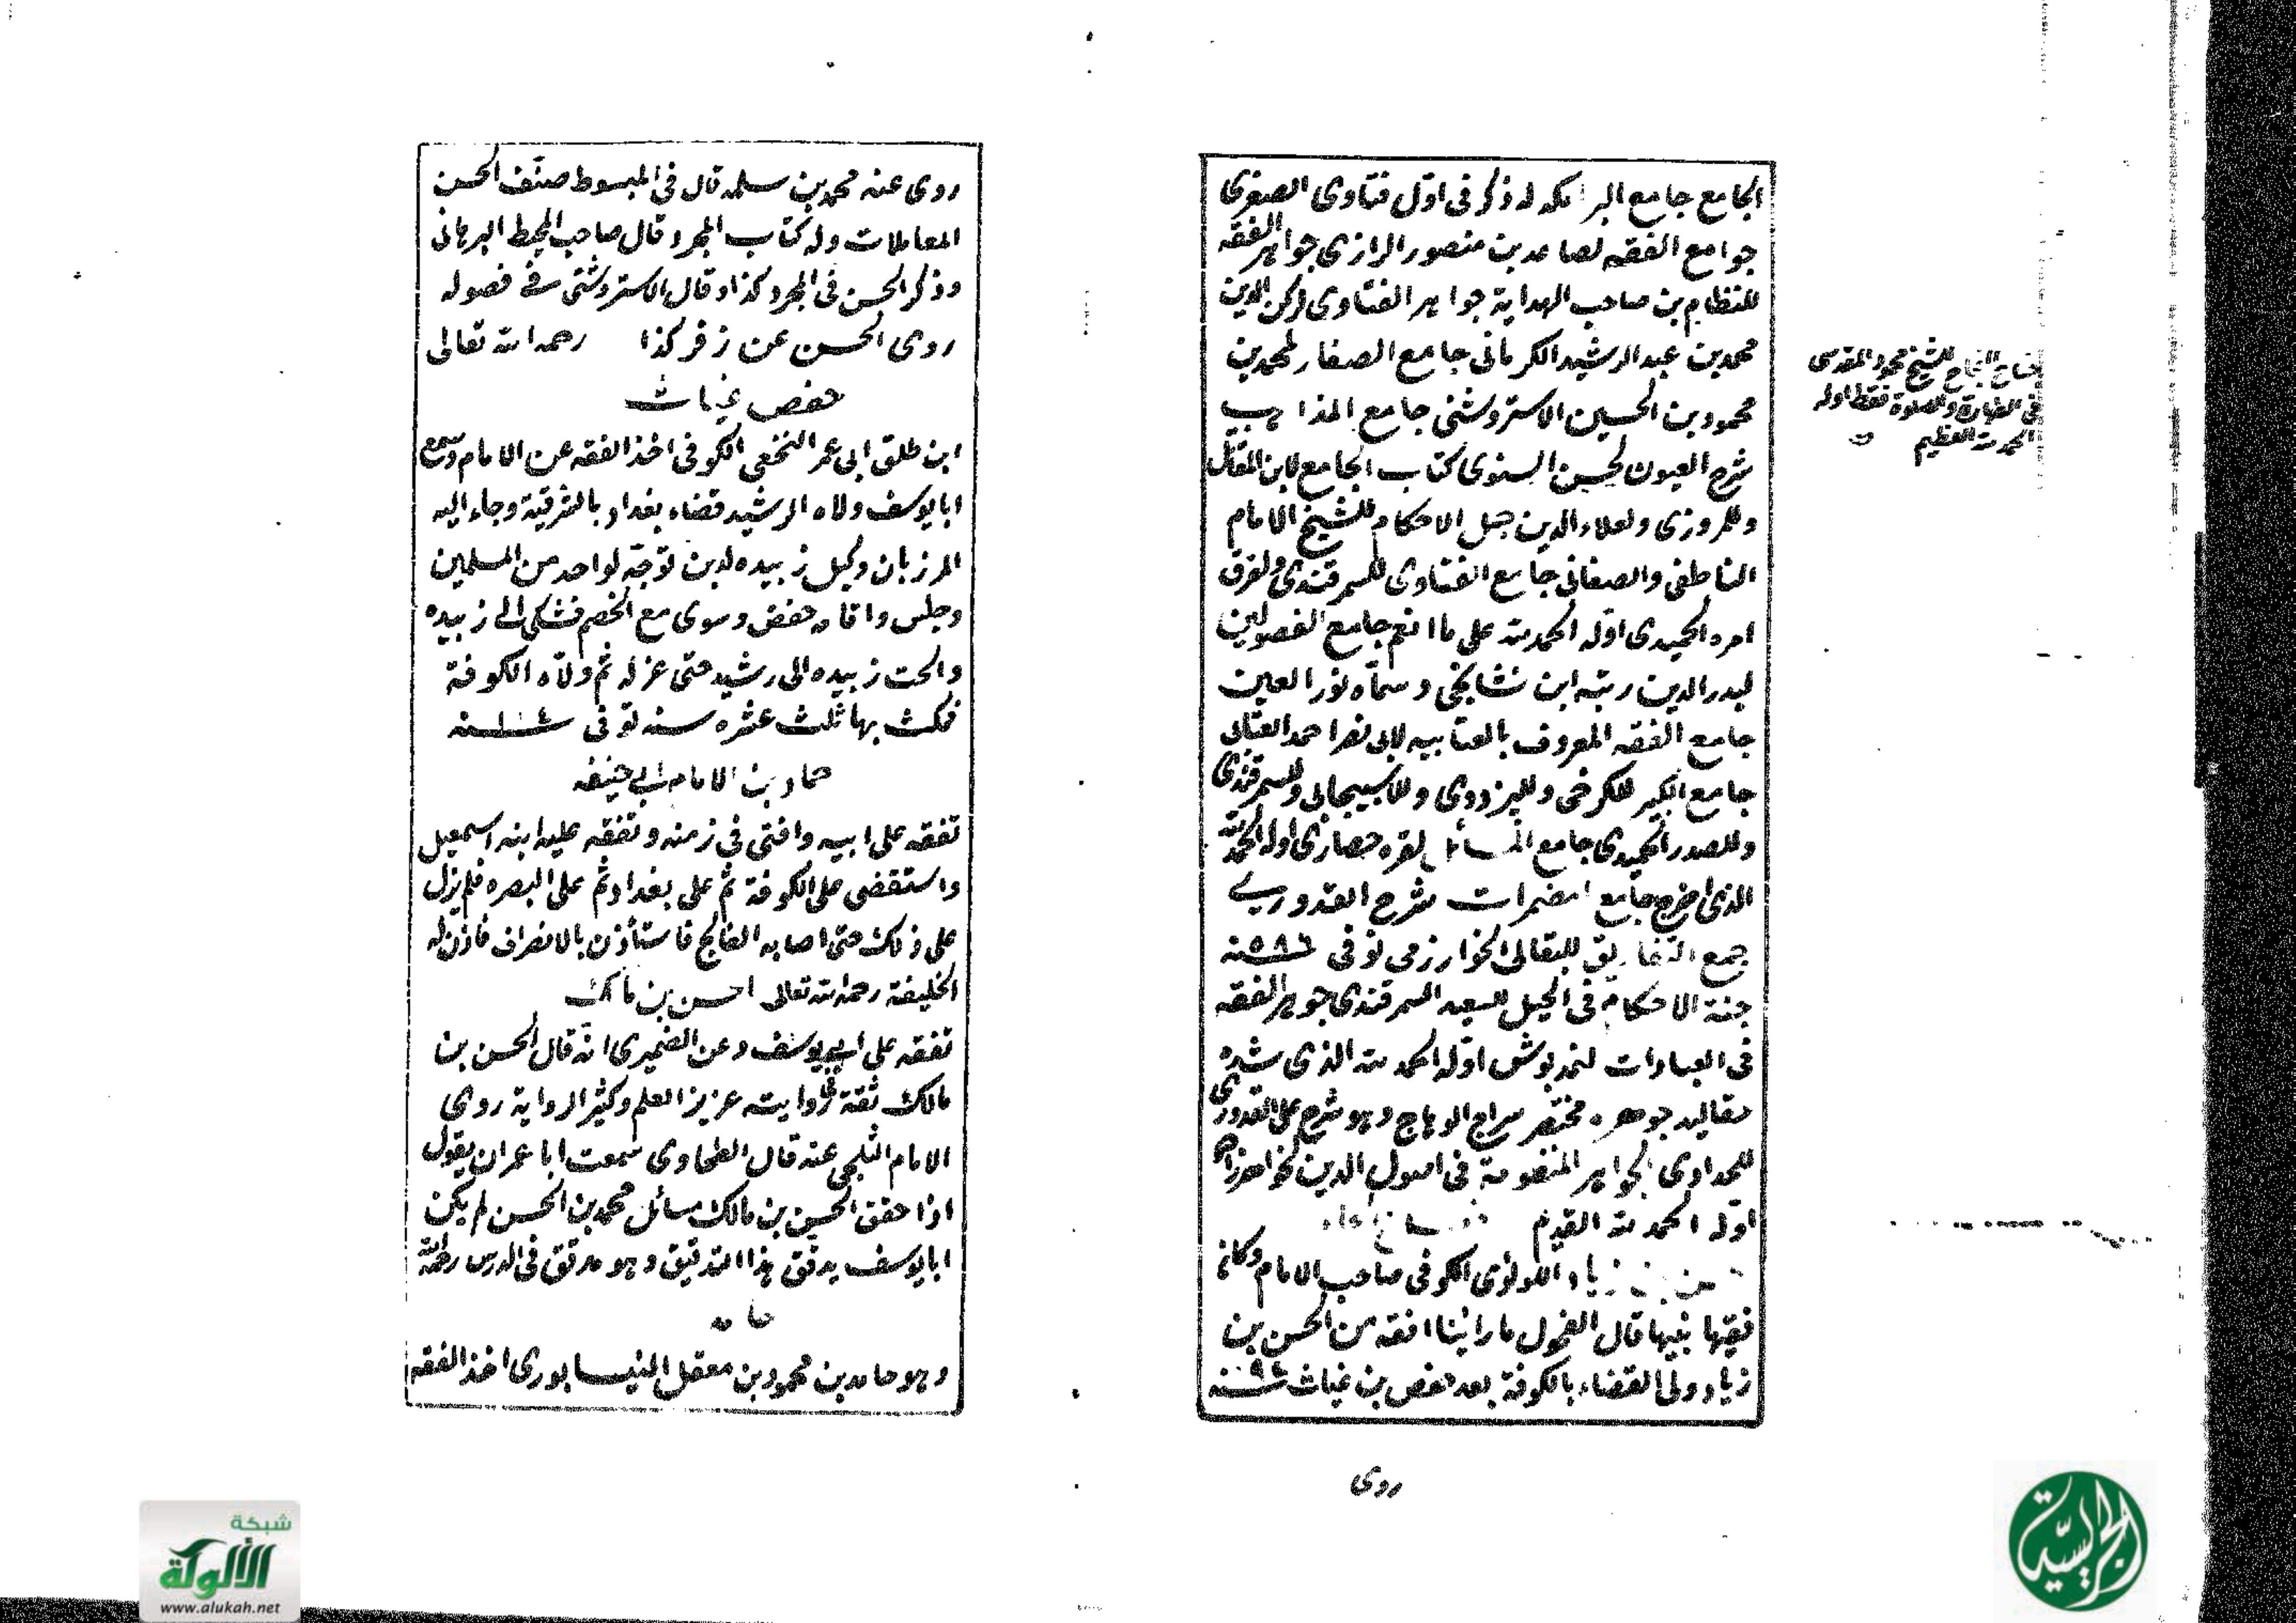 الجامع جامع البرامكه له ذكر فى اوّل فتاوى الصغرى
جوامع الفقه لصاعد بن منصور الرازى جواهر الفقه
للنظام بن صاحب الهداية جواهر الفتاوى لركن الدين
محمد بن عبد الرشيد الكرمانى جامع الصغار لمحمد بن
محمود بن الحسين الاستروشنى جامع المذاهب
شرح العيون لحسن السنوى كتاب الجامع لابن المقاتل
وللمروزى ولعلاء الدين جبل الاحكام للشيخ الامام
الناطفى والصغانى جامع الفتاوى للسمرقندى ولقرق
امره الحميدى اوّله الحمد لله على ما انعم جامع الفصولين
لبدر الدين رتبه ابن نشانجى وسمّاه نور العين
جامع الفقه المعروف بالعتابيه لابى نصر احمد العتابى
جامع الكبير للكرخى وللبزدوى وللاسبيجابى وللسمرقندى
وللصدر الحميدى جامع المسائل لقره حصارى اوله الحمد لله
الذى اخرج جامع المضمرات شرح القدورى
جمع التفاريق للبقالى الخوارزمى توفى سنه
جنة الاحكام فى الحيل للسعيد السمرقندى جواهر الفقه
فى العبادات لنمد بوش اوّله الحمد لله الذى شيد
مقاليد جوهره مختصر سراج الوهاج وهو شرح على القدورى
للحدادى الجواهر المنظومة فى اصول الدين لخواهر زاده
اوّله الحمد لله القديم
بن زياد اللولؤى الكوفى صاحب الامام وكان
فقيها نبيها قال الفحول ما راينا افقه من الحسن بن
زياد ولى القضاء بالكوفة بعد حفص بن غياث سنه
روى
للشيخ محمود المقدسى
فى الطهارة والصلوة فقط اوله
الحمد لله العظيم
روى عنه محمد بن سلمه قال فى المبسوط صنّف الحسن
المعاملات وله كتاب المجرد قال صاحب المحيط البرهانى
وذكر الحسن فى المجرد كذا وقال الاستروشنى فى فصوله
روى الحسن عن زفر كذا رحمه الله تعالى
حفص غياث
ابن طلق ابى عمر النخعى الكوفى اخذ الفقه عن الامام وسمع
ابا يوسف ولاه الرشيد قضاء بغداد بالشرقية وجاء اليه
المرزبان وكيل زبيده لدين توجّه لواحد من المسلمين
وجلس واقامه حفص وسوى مع الخصم فشكى الى زبيده
والحت زبيده الى رشيد حتى عزله ثم ولّاه الكوفة
فمكث بها ثلث عشره سنه توفى سنه
حماد بن الامام ابى حنيفه
تفقه على ابيه وافتى فى زمنه وتفقه عليه ابنه اسمعيل
واستقضى على الكوفة ثم على بغداد ثم على البصره فلم يزل
على ذلك حتى اصابه الفالج فاستأذن بالانصراف فاذن له
الخليفة رحمه الله تعالى احسن بن مالك
تفقه على ابى يوسف وعن الصّميرى انّه قال الحسن بن
مالك ثقة فى روايته عزيز العلم وكثير الرواية روى
الامام الثلجى عنه قال الطحاوى سمعت ابا عمران يقول
اذا حقق الحسن بن مالك مسائل محمد بن الحسن لم يكن
ابا يوسف يدقق هذا التدقيق وهو مدقق فى الدرس رحمه الله
حامد
وهو حامد بن محمود بن معقل النيسابورى اخذ الفقه
شبكة
الألوكة
www.alukah.net